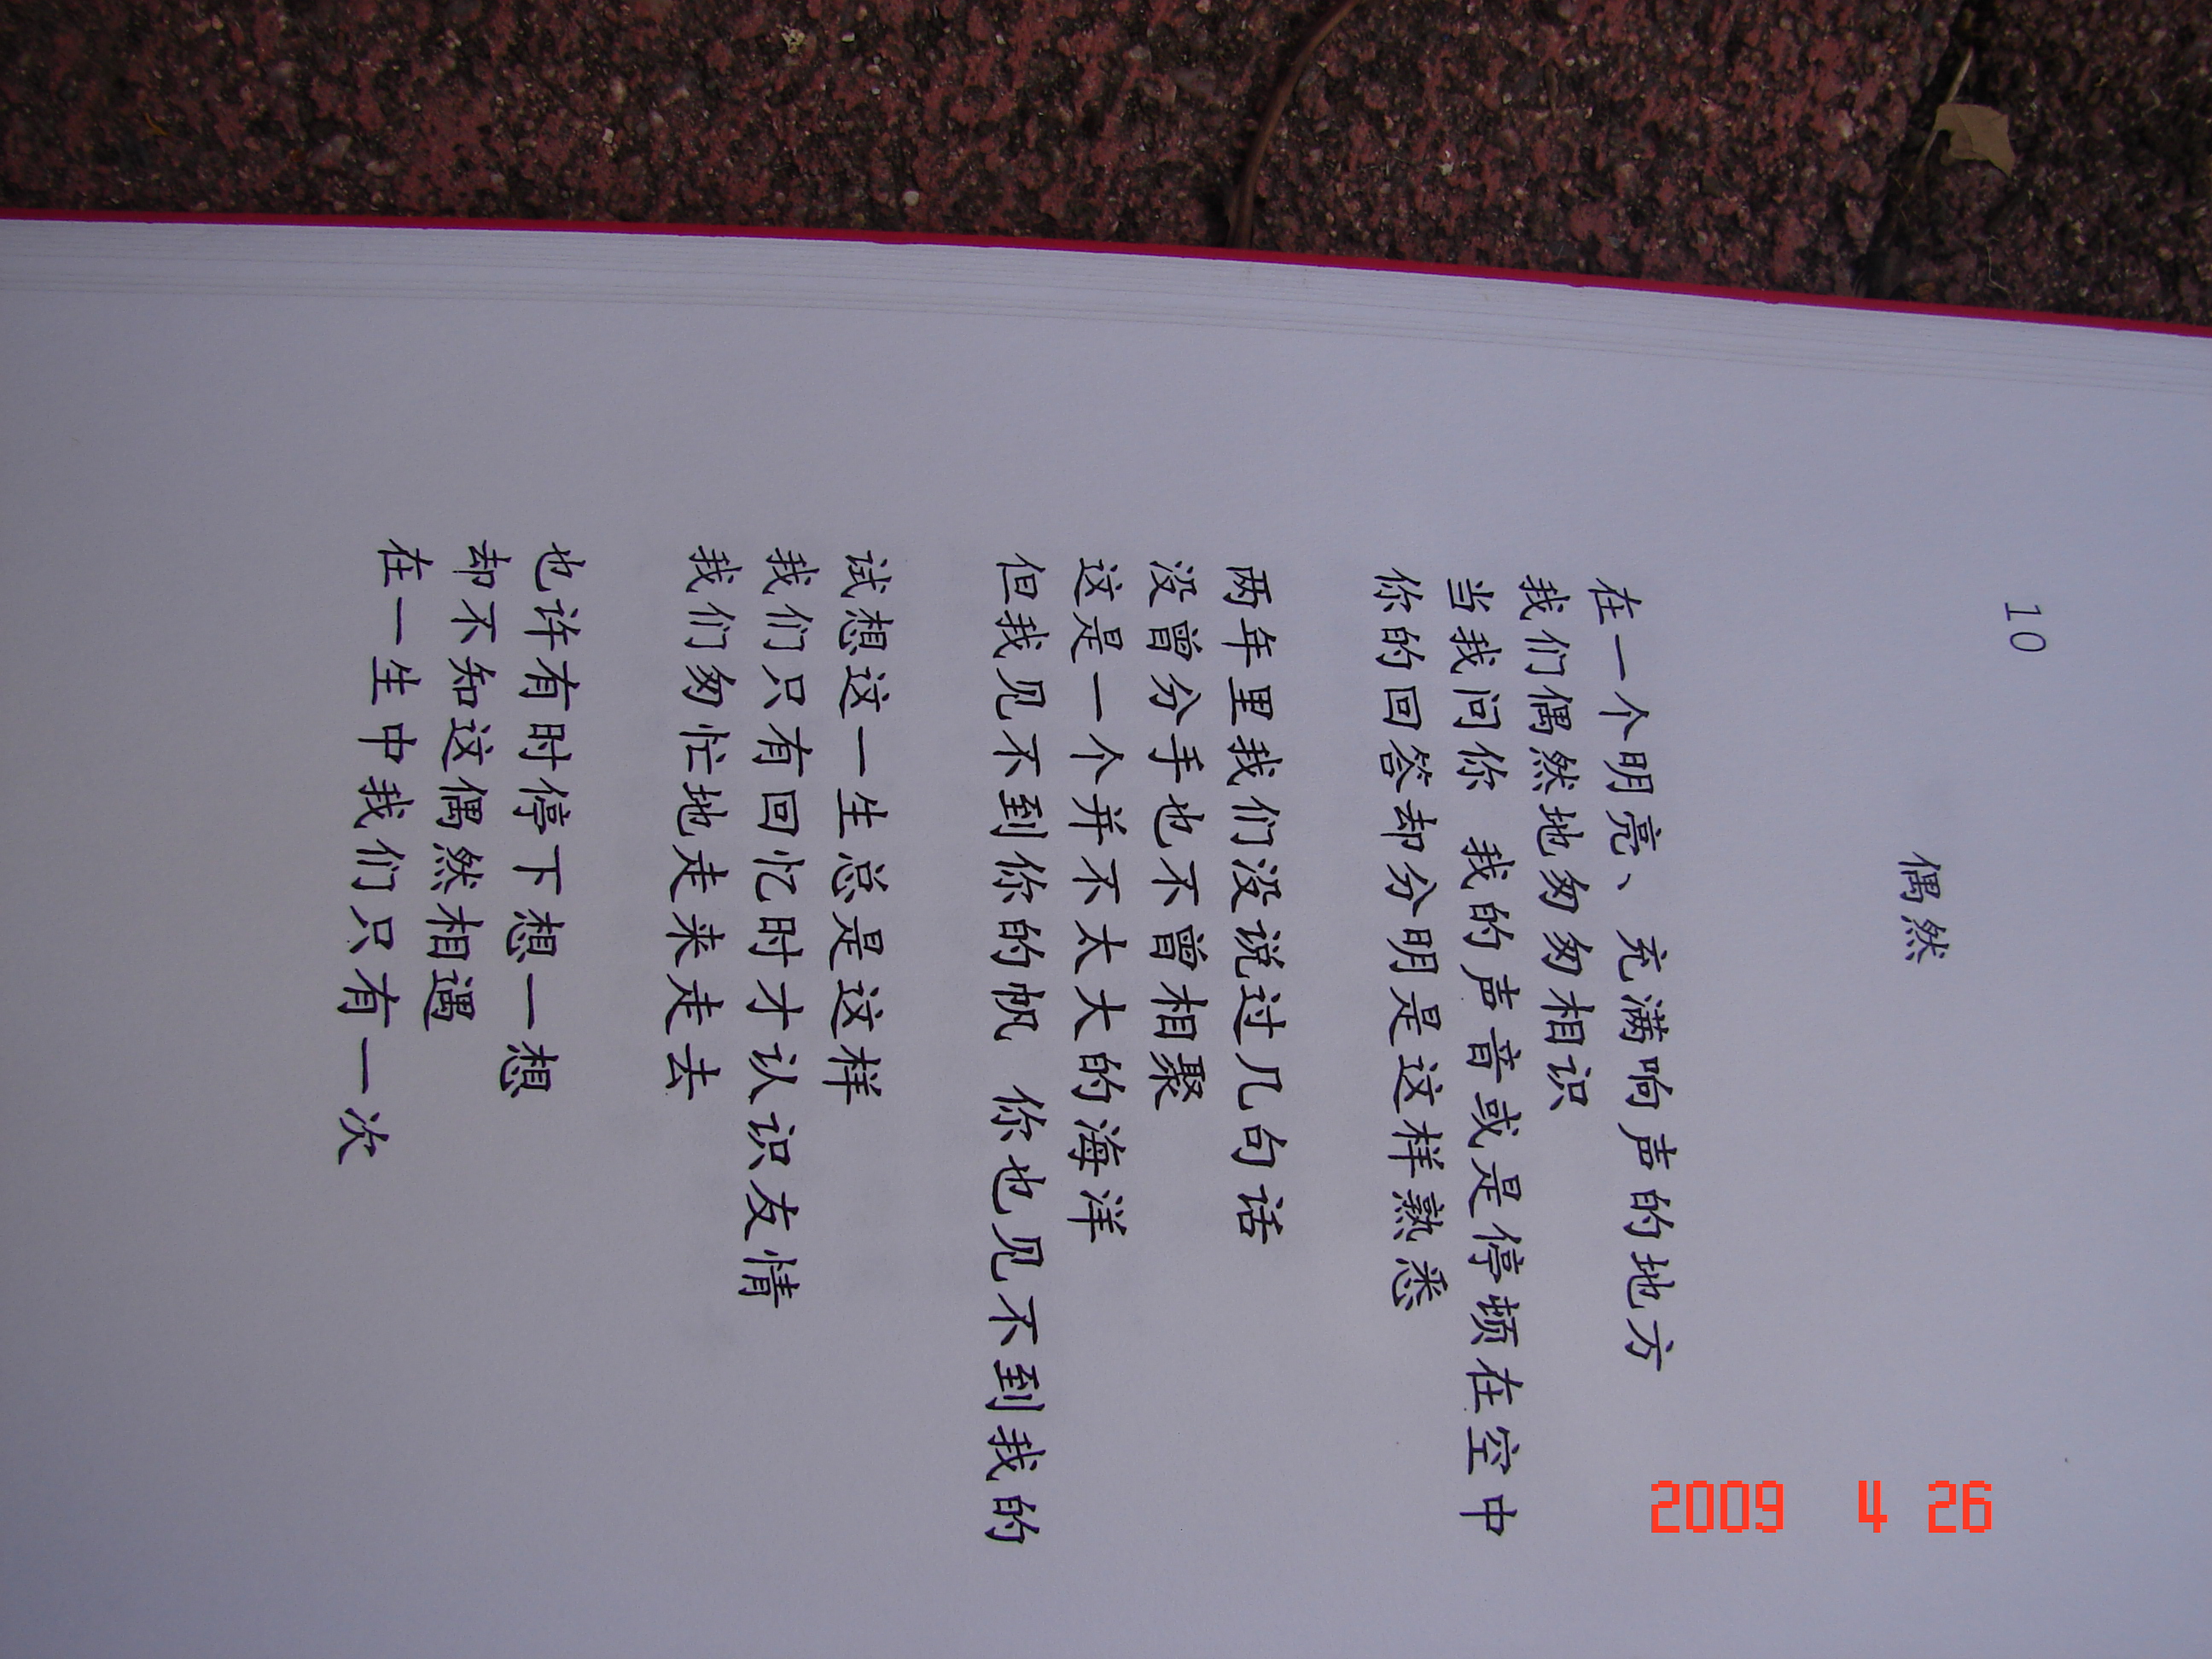 10
偶然
在一个明亮、充满响声的地方
我们偶然地匆匆相识
当我问你 我的声音或是停顿在空中
你的回答却分明是这样熟悉
两年里我们没说过几句话
没曾分手也不曾相聚
这是一个并不太大的海洋
但我见不到你的帆 你也见不到我的
试想这一生总是这样
我们只有回忆时才认识友情
我们匆忙地走来走去
也许有时停下想一想
却不知这偶然相遇
在一生中我们只有一次
2009 4 26